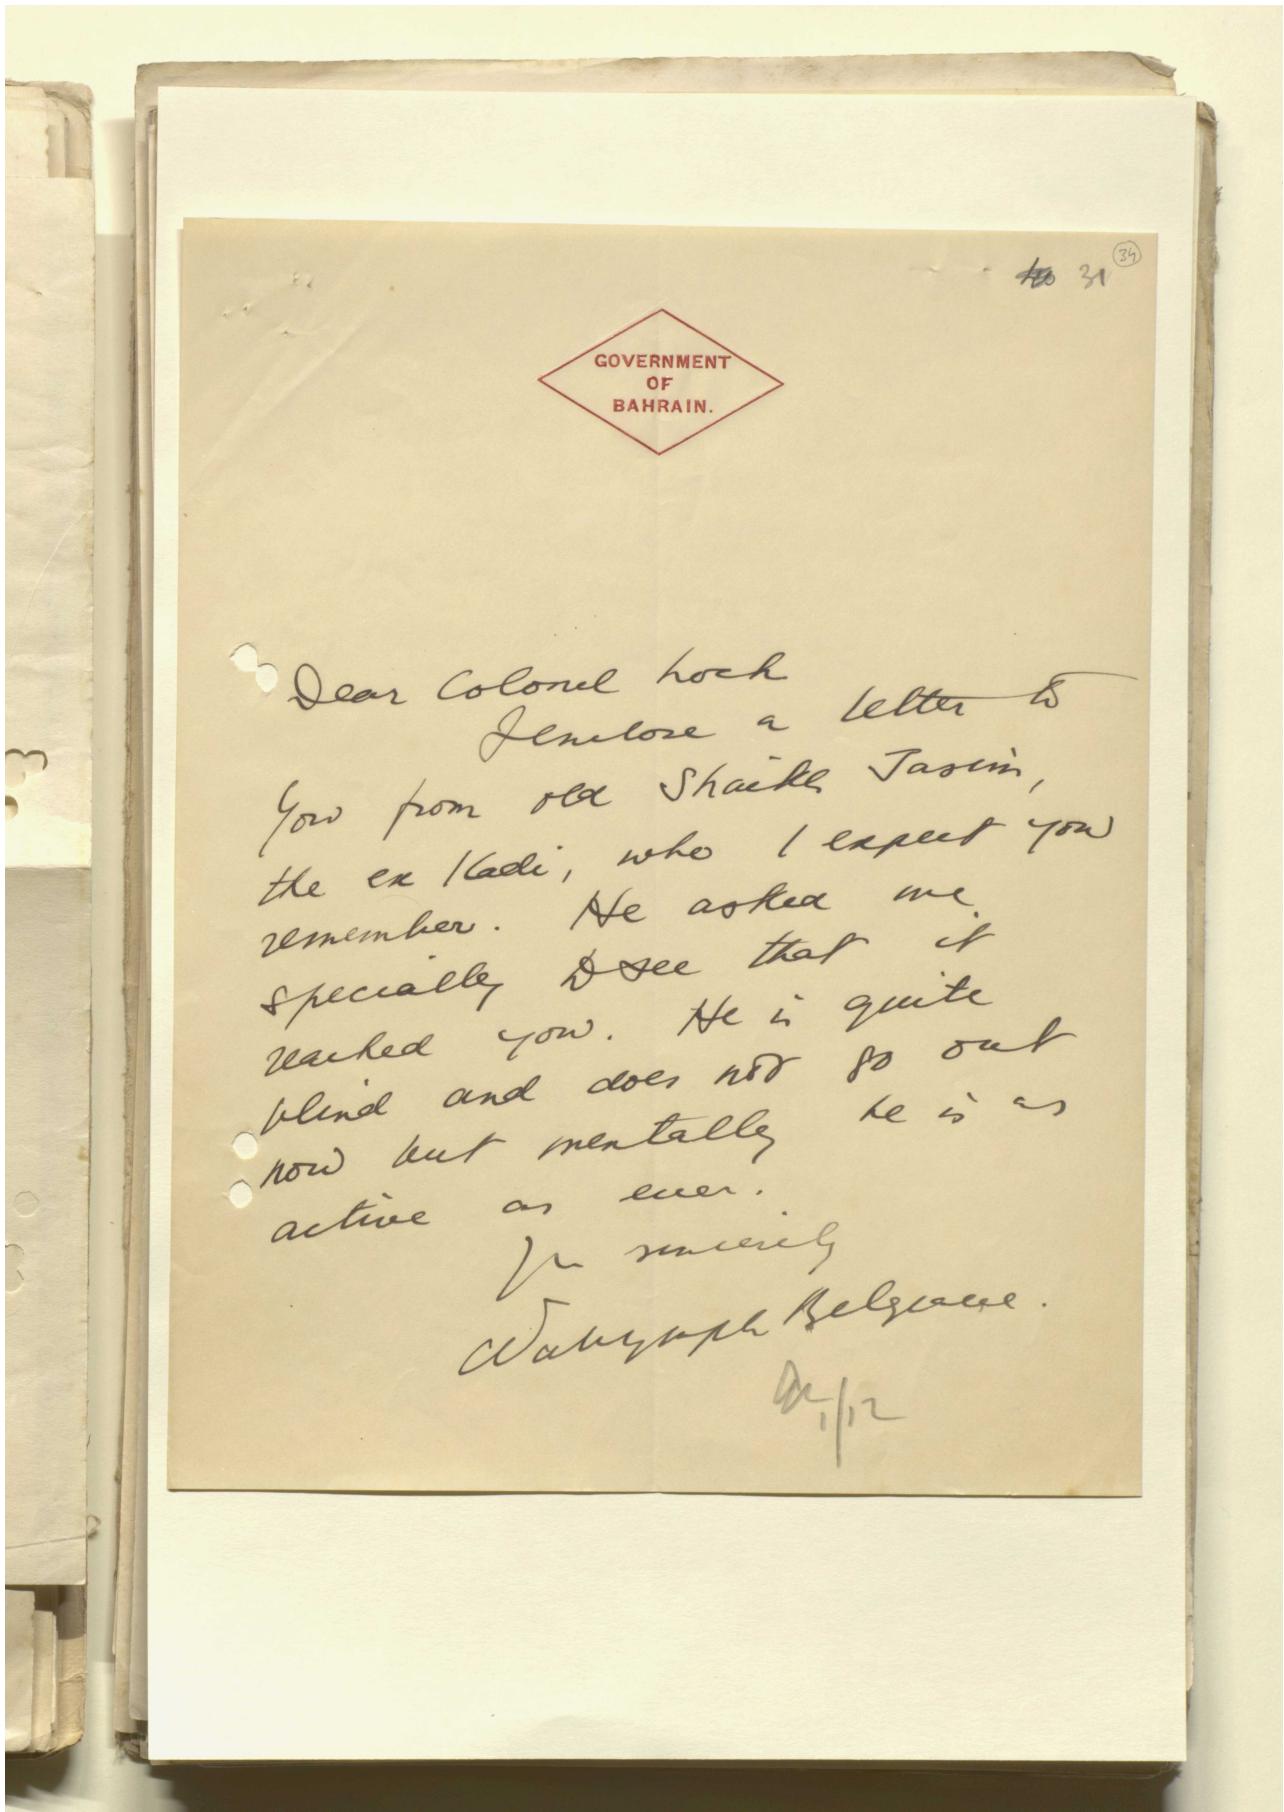 34
31
GOVERNMENT
OF
BAHRAIN.
Dear Colonel Loch
I enclose a letter to
you from old Shaikh Jasim,
the ex Kadi, who I expect you
remember. He asked me
specially to see that it
reached you. He is quite
blind and does not go out
now but mentally he is as
active as ever.
Yrs sincerely
Dalrymple Belgrave.
1/12